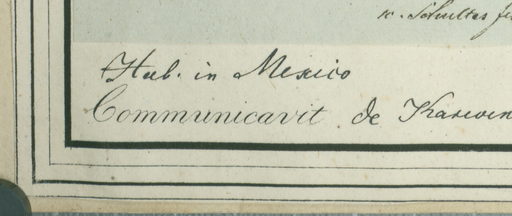 Schultes
Hab. in Mexico
Communicavit de Karwin